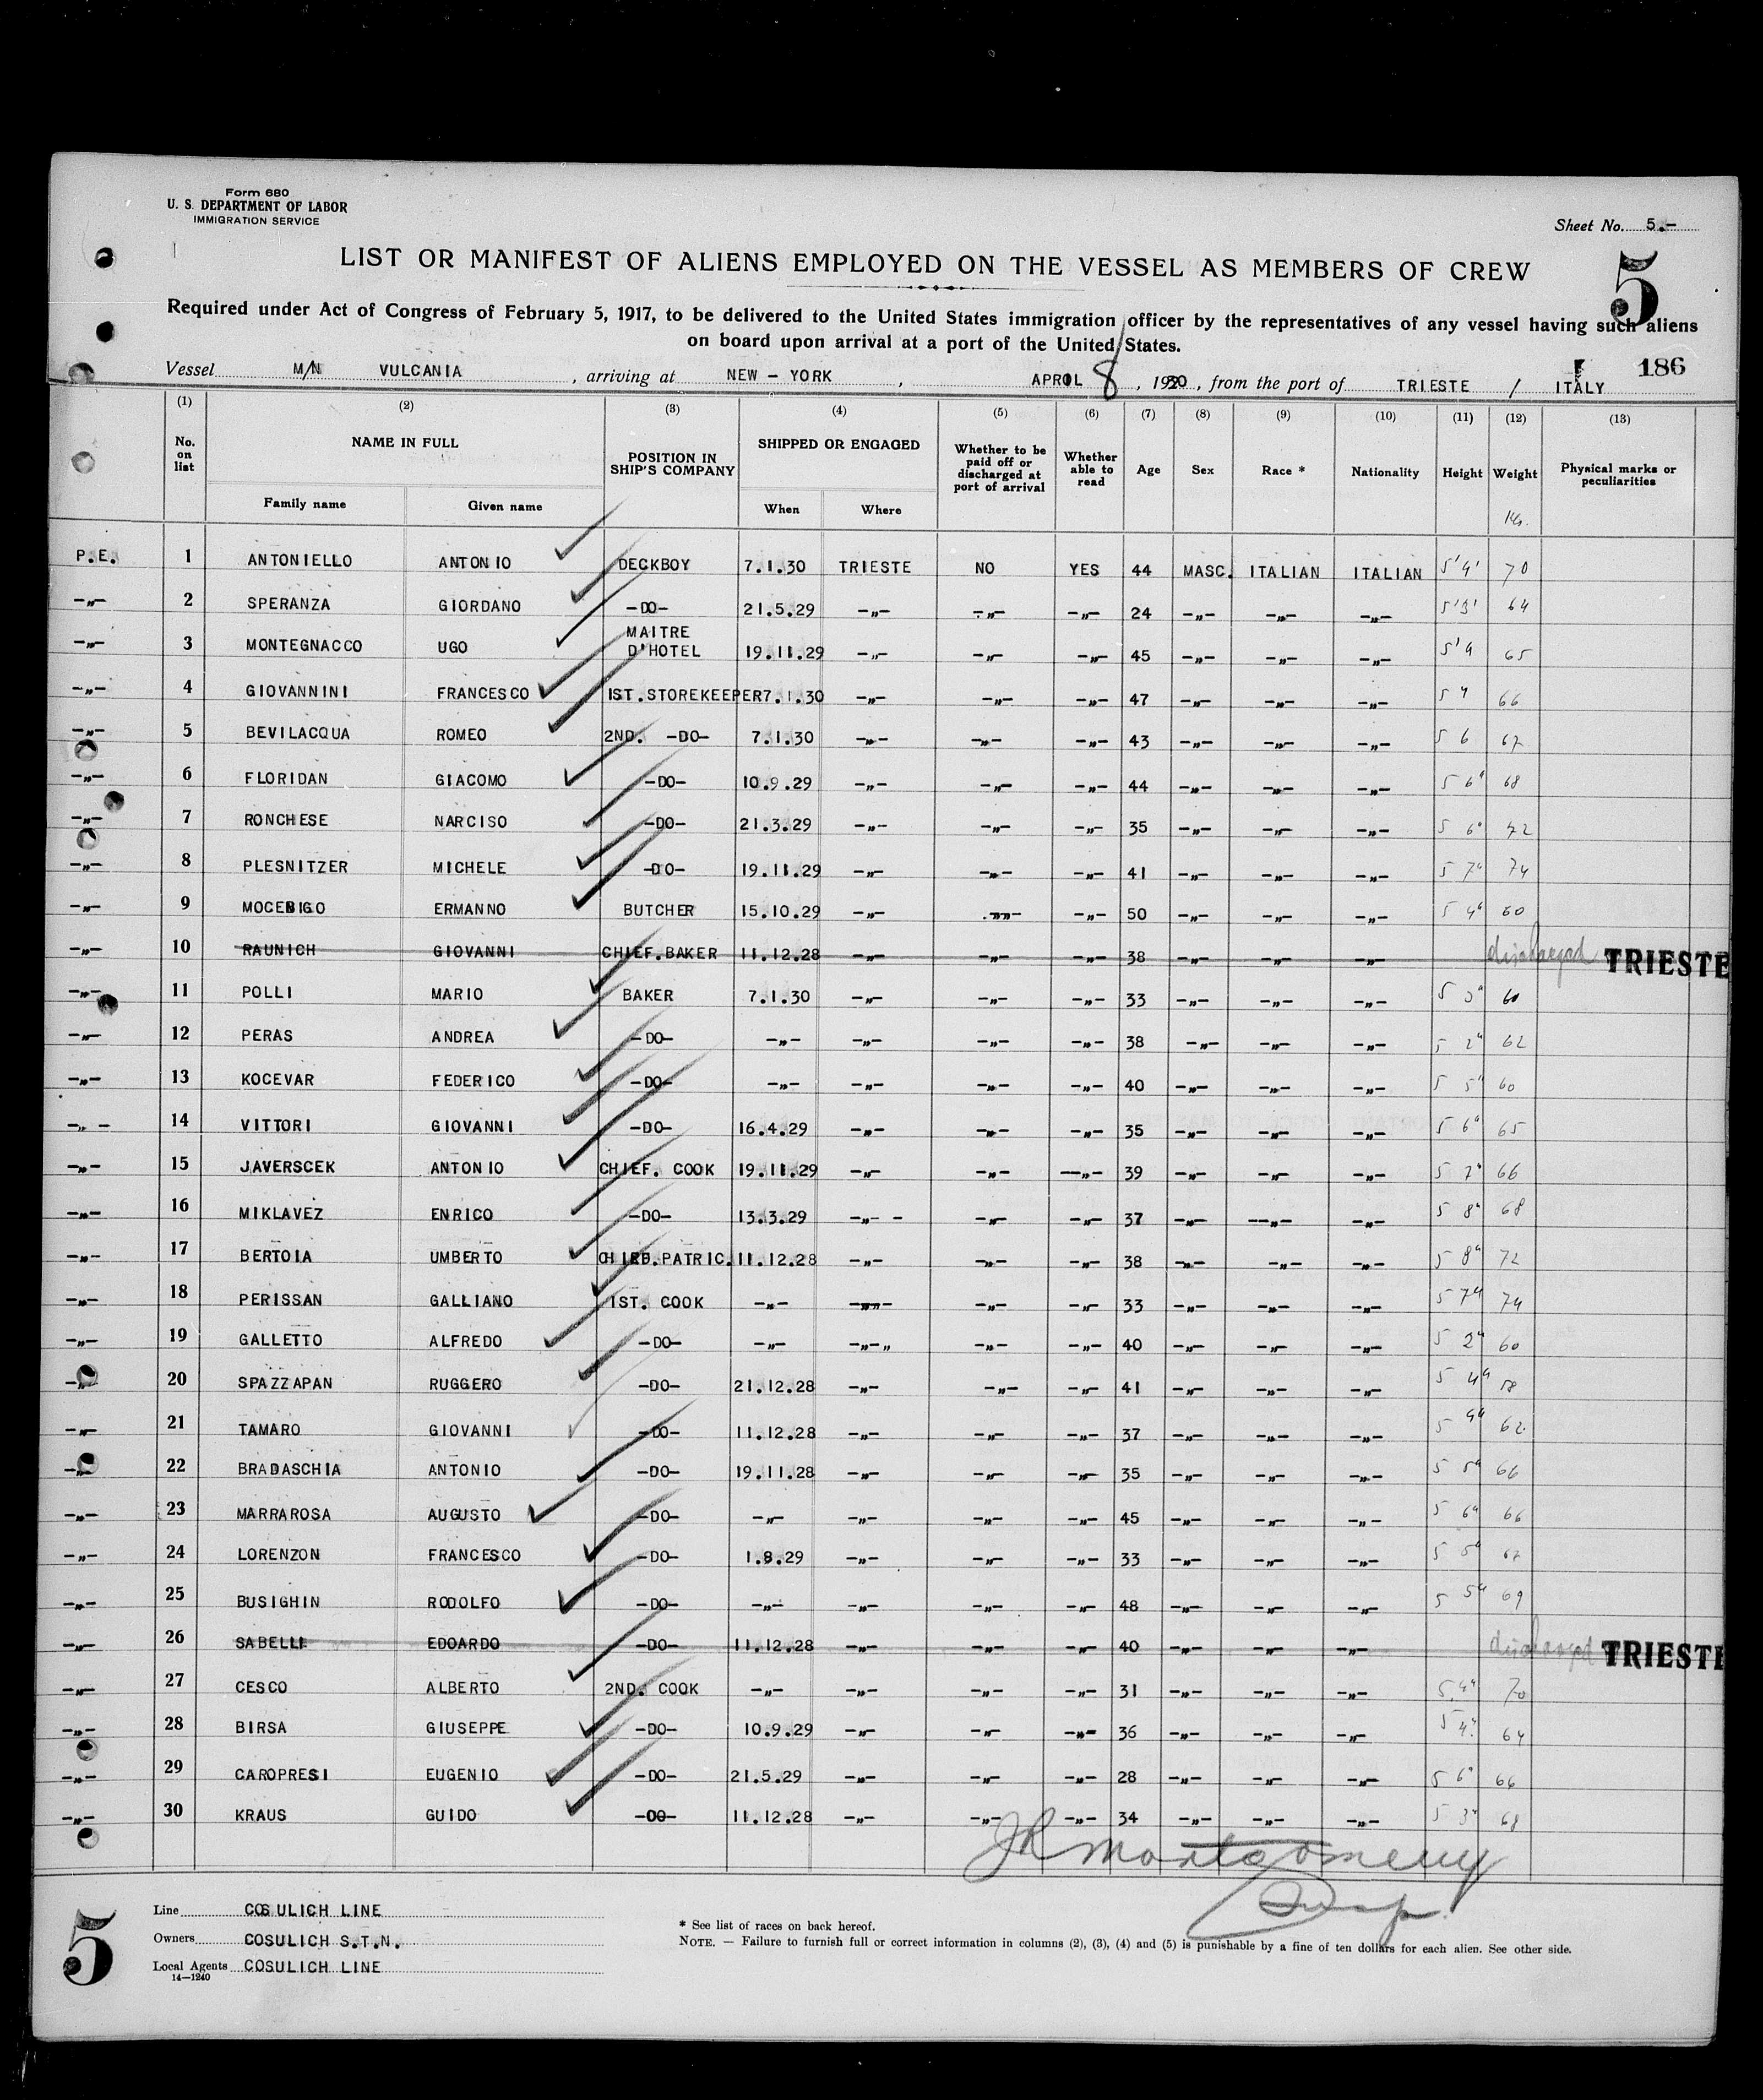 Form 680
U. S. DEPARTMENT OF LABOR
IMMIGRATION SERVICE
Sheet No. 5.-
LIST OR MANIFEST OF ALIENS EMPLOYED ON THE VESSEL AS MEMBERS OF CREW
5
Required under Act of Congress of February 5, 1917, to be delivered to the United States immigration officer by the representatives of any vessel having such aliens
on board upon arrival at a port of the United States.
186
Vessel M/N VULCANIA, arriving at NEW - YORK, APRIL 8, 1930, from the port of TRIESTE / ITALY
(1) (2) (3) (4) (5) (6) (7) (8) (9) (10) (11) (12) (13)
No. on list NAME IN FULL POSITION IN SHIP'S COMPANY SHIPPED OR ENGAGED Whether to be paid off or discharged at port of arrival Whether able to read Age Sex Race * Nationality Height Weight Physical marks or peculiarities
Family name Given name When Where
P.E. 1 ANTONIELLO ANTONIO DECKBOY 7.1.30 TRIESTE NO YES 44 MASC. ITALIAN ITALIAN 5'4' 70
-"- 2 SPERANZA GIORDANO -DO- 21.5.29 -"- -"- -"- 24 -"- -"- -"- 5'3' 64
-"- 3 MONTEGNACCO UGO MAITRE D'HOTEL 19.11.29 -"- -"- -"- 45 -"- -"- -"- 5'4 65
-"- 4 GIOVANNINI FRANCESCO 1ST.STOREKEEPER 7.1.30 -"- -"- -"- 47 -"- -"- -"- 5 4 66
-"- 5 BEVILACQUA ROMEO 2ND. -DO- 7.1.30 -"- -"- -"- 43 -"- -"- -"- 5 6 67
-"- 6 FLORIDAN GIACOMO -DO- 10.9.29 -"- -"- -"- 44 -"- -"- -"- 5 6" 68
-"- 7 RONCHESE NARCISO -DO- 21.3.29 -"- -"- -"- 35 -"- -"- -"- 5 6" 72
-"- 8 PLESNITZER MICHELE -DO- 19.11.29 -"- -"- -"- 41 -"- -"- -"- 5 7" 74
-"- 9 MOCENIGO ERMANNO BUTCHER 15.10.29 -"- -"- -"- 50 -"- -"- -"- 5 4" 60
-"- 10 RAUNICH GIOVANNI CHIEF.BAKER 11.12.28 -"- -"- -"- 38 -"- -"- -"- discharged TRIESTE
-"- 11 POLLI MARIO BAKER 7.1.30 -"- -"- -"- 33 -"- -"- -"- 5 60
-"- 12 PERAS ANDREA -DO- -"- -"- -"- -"- 38 -"- -"- -"- 5 2" 62
-"- 13 KOCEVAR FEDERICO -DO- -"- -"- -"- -"- 40 -"- -"- -"- 5 5" 60
-"- 14 VITTORI GIOVANNI -DO- 16.4.29 -"- -"- -"- 35 -"- -"- -"- 5 6" 65
-"- 15 JAVERSCEK ANTONIO CHIEF. COOK 19.11.29 -"- -"- -"- 39 -"- -"- -"- 5 7" 66
-"- 16 MIKLAVEZ ENRICO -DO- 13.3.29 -"- - -"- -"- 37 -"- -"- -"- 5 8" 68
-"- 17 BERTOIA UMBERTO CHIEF.PATRIC. 11.12.28 -"- -"- -"- 38 -"- -"- -"- 5 8" 72
-"- 18 PERISSAN GALLIANO 1ST. COOK -"- -"- -"- -"- 33 -"- -"- -"- 5 7" 74
-"- 19 GALLETTO ALFREDO -DO- -"- -"-" -"- -"- 40 -"- -"- -"- 5 2" 60
-"- 20 SPAZZAPAN RUGGERO -DO- 21.12.28 -"- -"- -"- 41 -"- -"- -"- 5 4" 58
-"- 21 TAMARO GIOVANNI -DO- 11.12.28 -"- -"- -"- 37 -"- -"- -"- 5 4" 62
-"- 22 BRADASCHIA ANTONIO -DO- 19.11.28 -"- -"- -"- 35 -"- -"- -"- 5 5" 66
-"- 23 MARRAROSA AUGUSTO -DO- -"- -"- -"- -"- 45 -"- -"- -"- 5 6" 66
-"- 24 LORENZON FRANCESCO -DO- 1.8.29 -"- -"- -"- 33 -"- -"- -"- 5 5" 67
-"- 25 BUSIGHIN RODOLFO -DO- -"- -"- -"- -"- 48 -"- -"- -"- 5 5" 69
-"- 26 SABELLI EDOARDO -DO- 11.12.28 -"- -"- -"- 40 -"- -"- -"- discharged TRIESTE
-"- 27 CESCO ALBERTO 2ND. COOK -"- -"- -"- -"- 31 -"- -"- -"- 5 4" 70
-"- 28 BIRSA GIUSEPPE -DO- 10.9.29 -"- -"- -"- 36 -"- -"- -"- 5 4" 64
-"- 29 CAROPRESI EUGENIO -DO- 21.5.29 -"- -"- -"- 28 -"- -"- -"- 5 6" 66
-"- 30 KRAUS GUIDO -DO- 11.12.28 -"- -"- -"- 34 -"- -"- -"- 5 3" 68
JR Montgomery
Insp.
5
Line COSULICH LINE
Owners COSULICH S.T.N.
Local Agents COSULICH LINE
14-1240
* See list of races on back hereof.
NOTE. — Failure to furnish full or correct information in columns (2), (3), (4) and (5) is punishable by a fine of ten dollars for each alien. See other side.